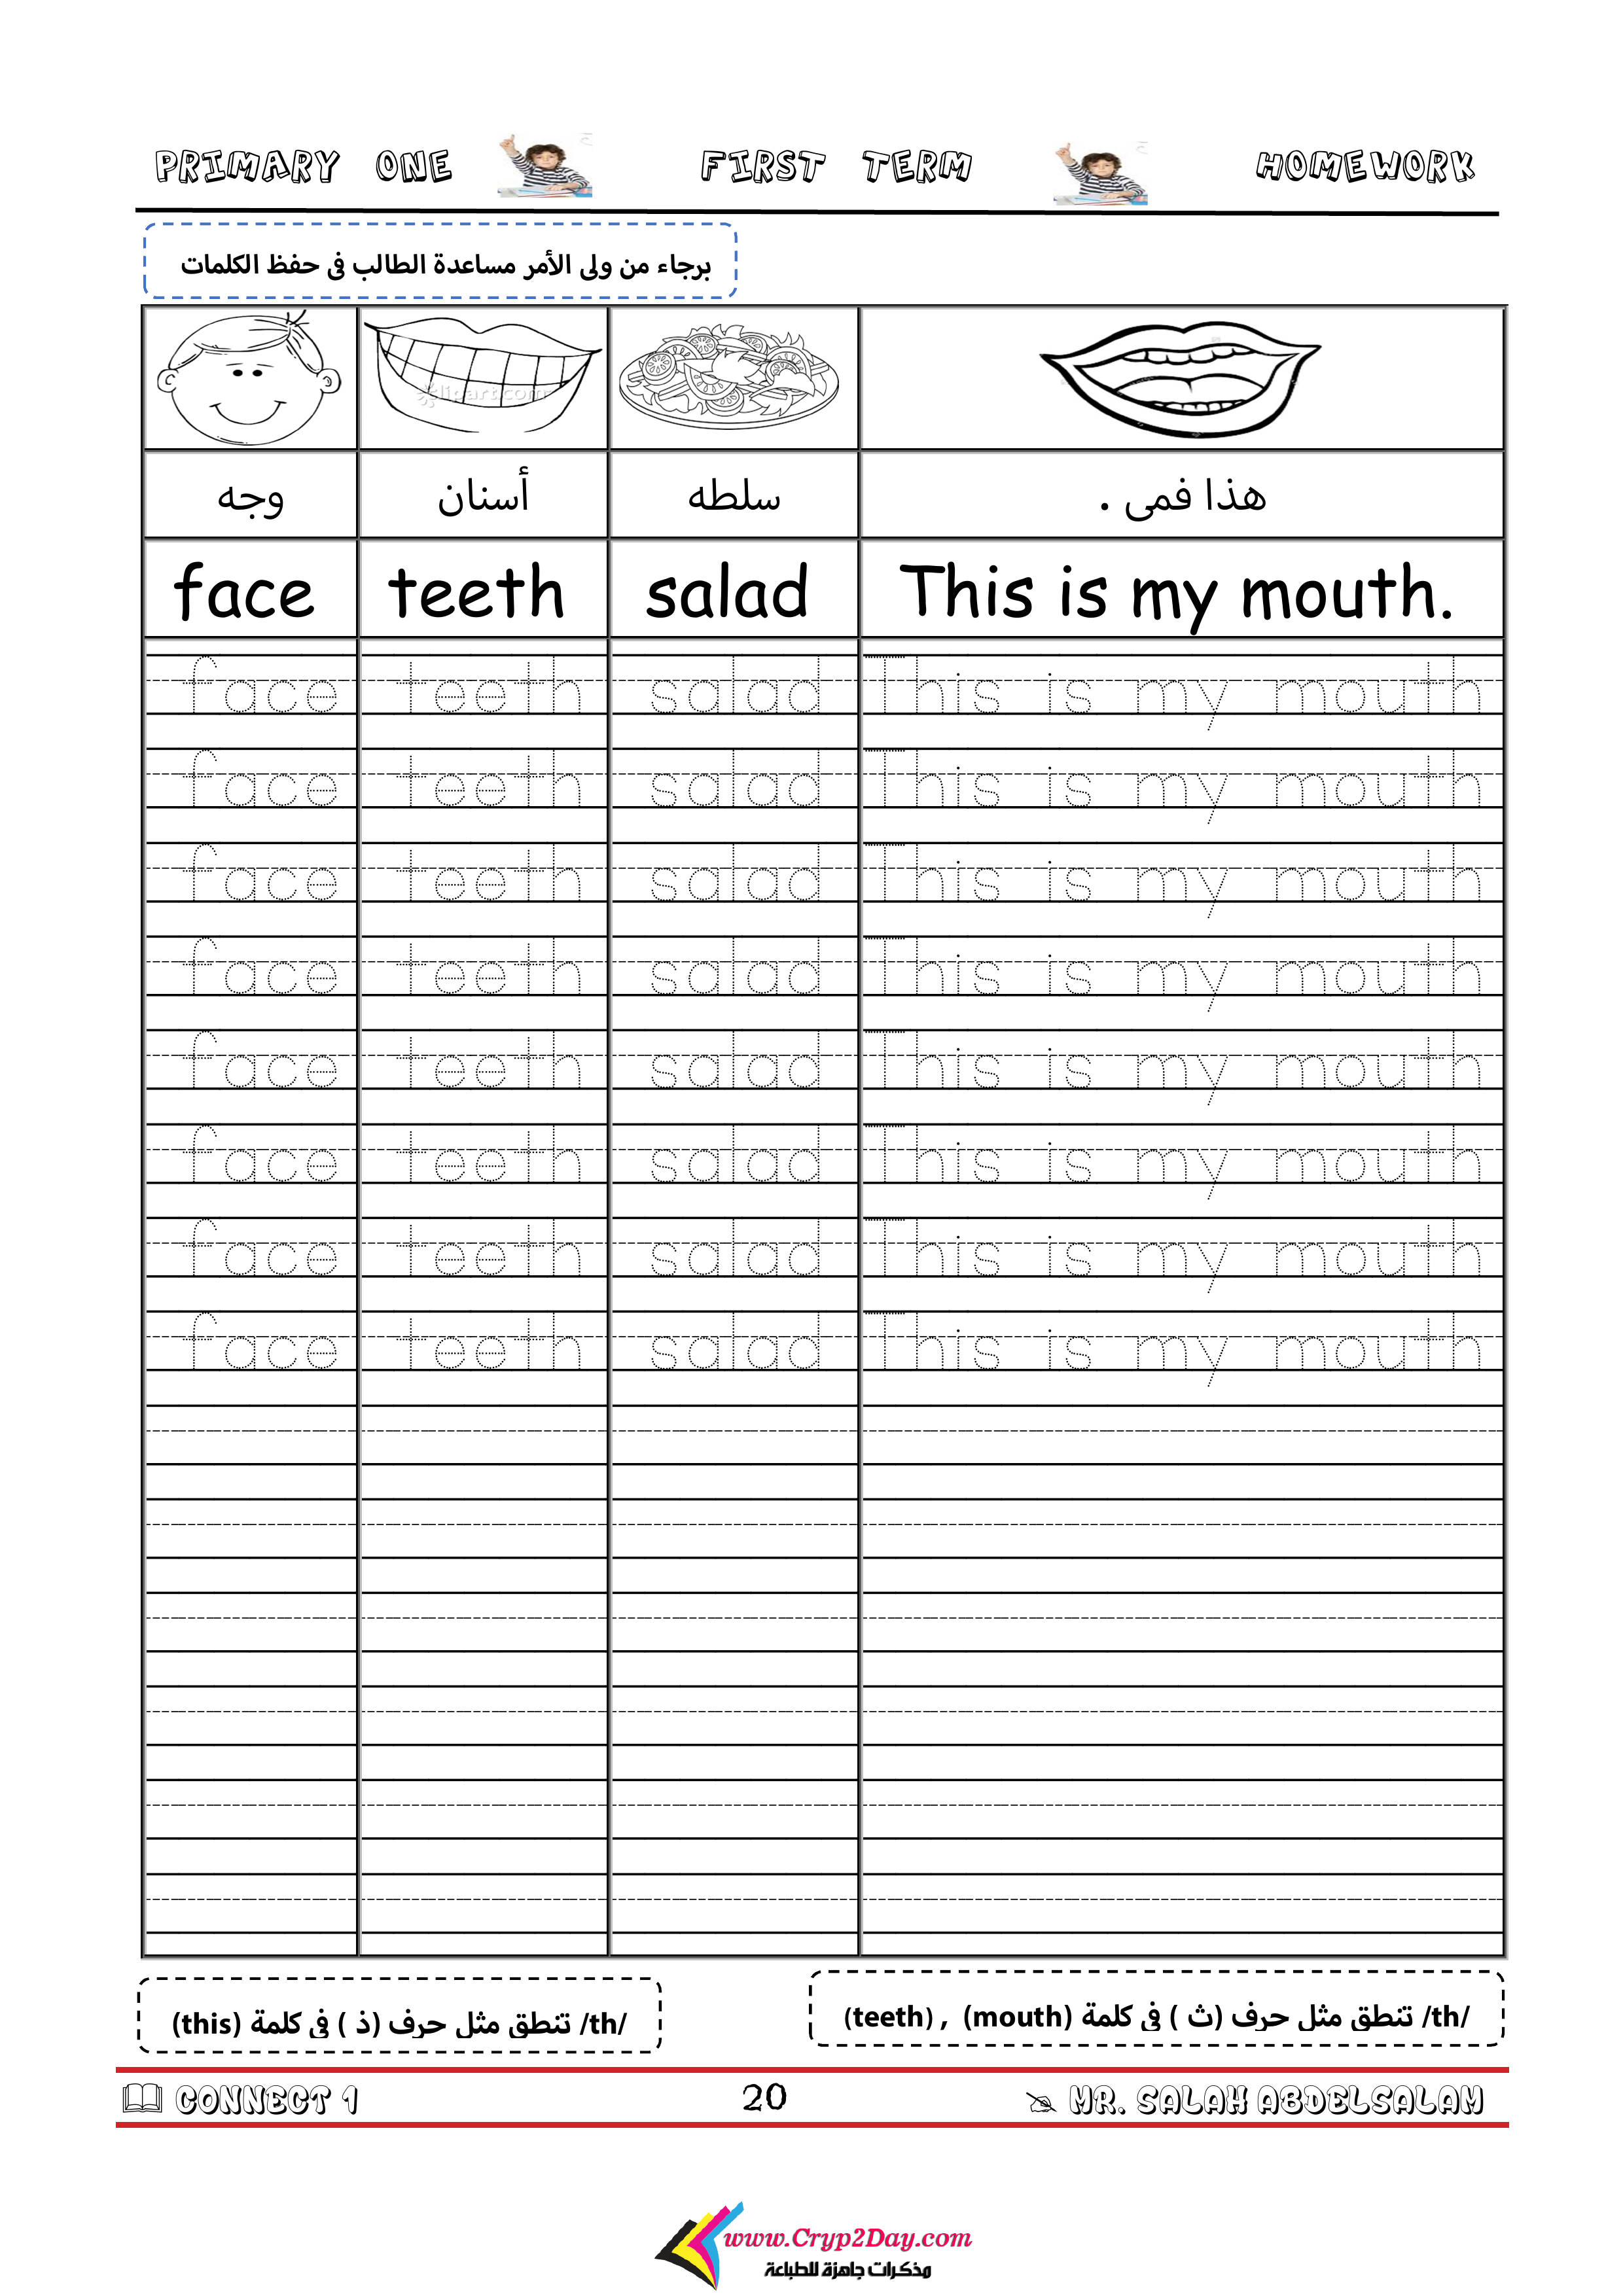 PRIMARY ONE FIRST TERM HOMEWORK
برجاء من ولى الأمر مساعدة الطالب فى حفظ الكلمات
clipart.com
وجه أسنان سلطه هذا فمى .
face teeth salad This is my mouth.
face teeth salad This is my mouth
face teeth salad This is my mouth
face teeth salad This is my mouth
face teeth salad This is my mouth
face teeth salad This is my mouth
face teeth salad This is my mouth
face teeth salad This is my mouth
face teeth salad This is my mouth
/th/ تنطق مثل حرف (ذ ) فى كلمة (this)
/th/ تنطق مثل حرف (ث ) فى كلمة (mouth) , (teeth)
CONNECT 1 20 MR. SALAH ABDELSALAM
www.Cryp2Day.com
مذكرات جاهزة للطباعة